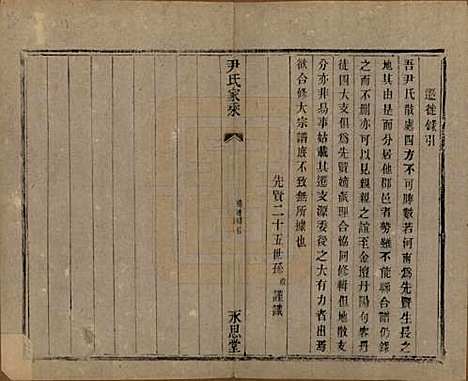 遷徙錄引
吾尹氏散處四方不可脾數若河南爲先賢生長之
地其由是分居他郡邑者勢雖不能聯合譜仍錄
之而不刪亦可見親親之誼至金壇丹陽句容丹
徒四大支俱爲先賢嫡裔理合協同修輯但地散支
分亦非易事姑載其遷支源委後之大有力者出焉
欲合修大宗譜庶不致無所據也
先賢二十五世孫 謹識
尹氏家乘
永思堂